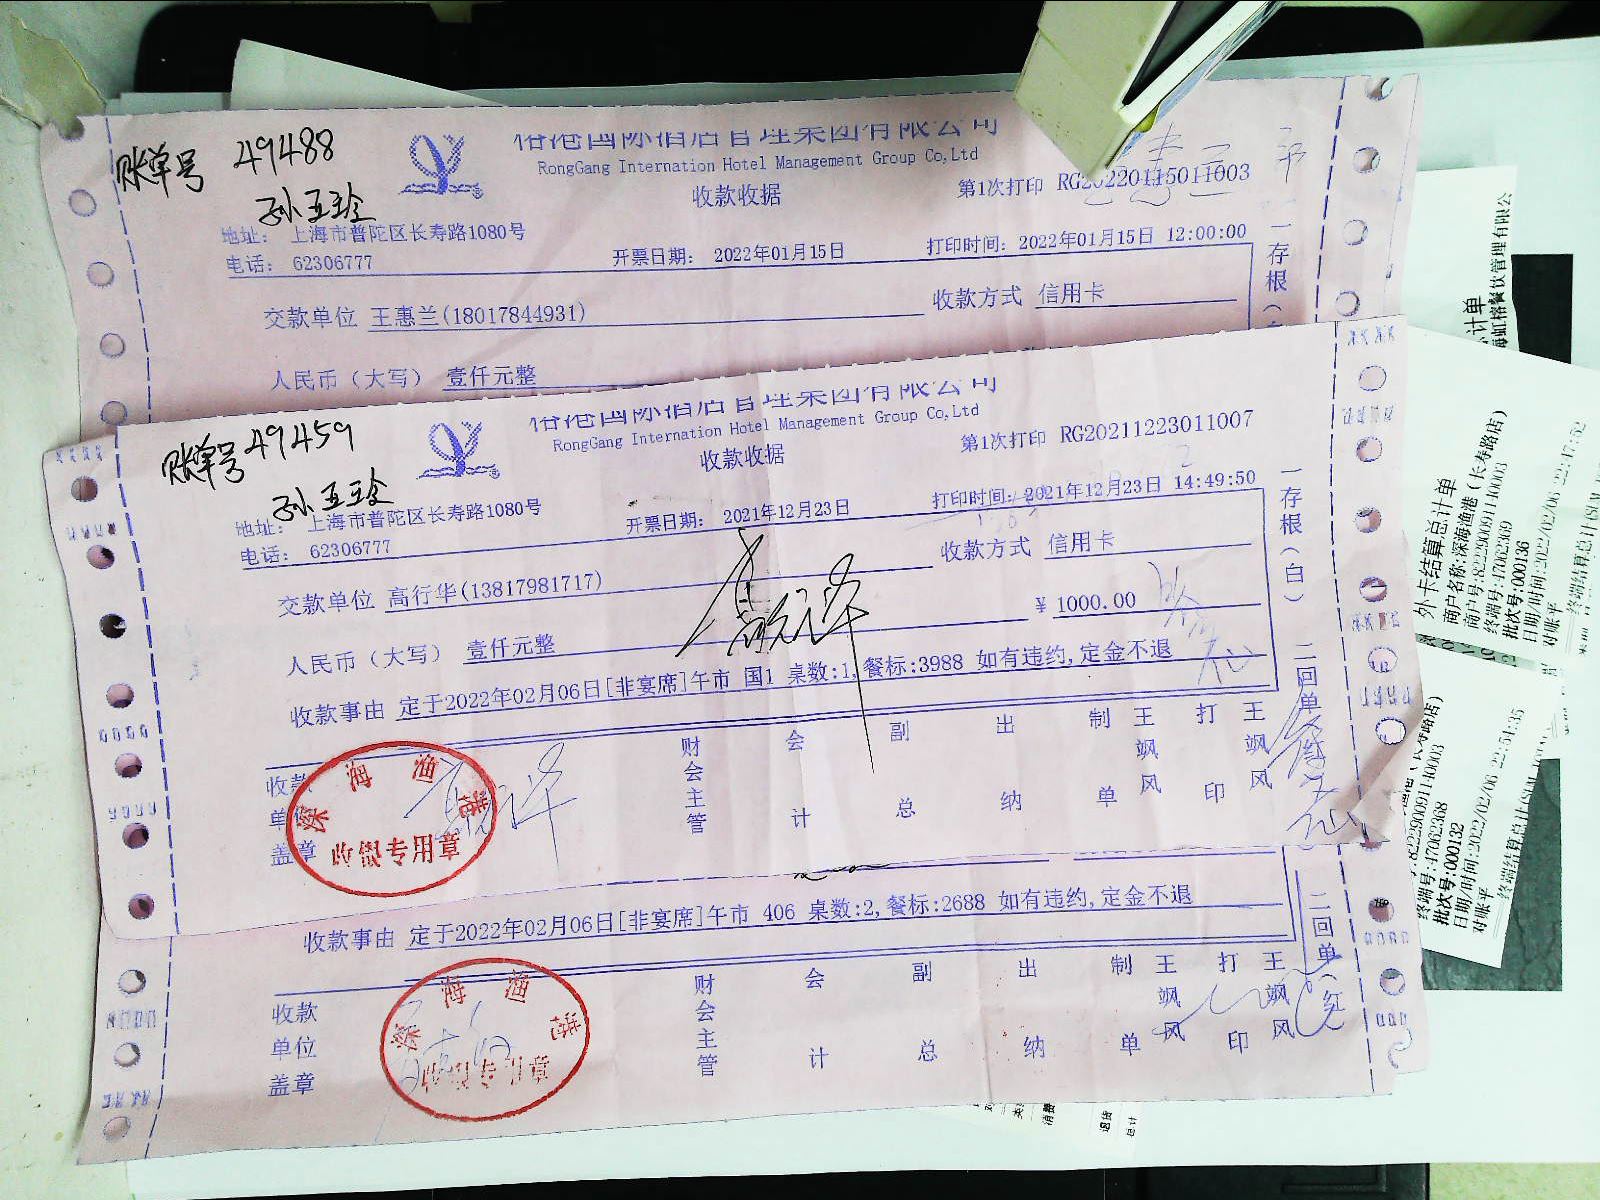 账单号 49488
孙五珍
国际酒店管理集团有限公司
RongGang Internation Hotel Management Group Co,Ltd
收款收据
第1次打印 RG20220115011003
地址： 上海市普陀区长寿路1080号
电话： 62306777
开票日期： 2022年01月15日
打印时间：2022年01月15日 12:00:00
交款单位 王惠兰(18017844931)
收款方式 信用卡
人民币（大写） 壹仟元整
一存根（
账单号 49459
孙五珍
国际酒店管理集团有限公司
RongGang Internation Hotel Management Group Co,Ltd
收款收据
第1次打印 RG20211223011007
地址： 上海市普陀区长寿路1080号
电话： 62306777
开票日期： 2021年12月23日
打印时间：2021年12月23日 14:49:50
交款单位 高行华(13817981717)
收款方式 信用卡
人民币（大写） 壹仟元整
¥ 1000.00
收款事由 定于2022年02月06日[非宴席]午市 国1 桌数:1,餐标:3988 如有违约,定金不退
一存根（白） 二回单
收款单位盖章
财会主管
会计
副总
出纳
制单
王飒风
打印
王飒风
深海渔港
收款事由 定于2022年02月06日[非宴席]午市 406 桌数:2,餐标:2688 如有违约,定金不退
二回单（红
收款单位盖章
财会主管
会计
副总
出纳
制单
王飒风
打印
王飒风
深海渔港
外卡结算总计单
商户名称:深海渔港（长寿路店）
商户号:822290091140003
终端号:47062369
批次号:000136
日期/时间:2022/02/06 22:47:52
对账平
终端号:47062368
批次号:000132
日期/时间:2022/02/06 22:51:35
对账平